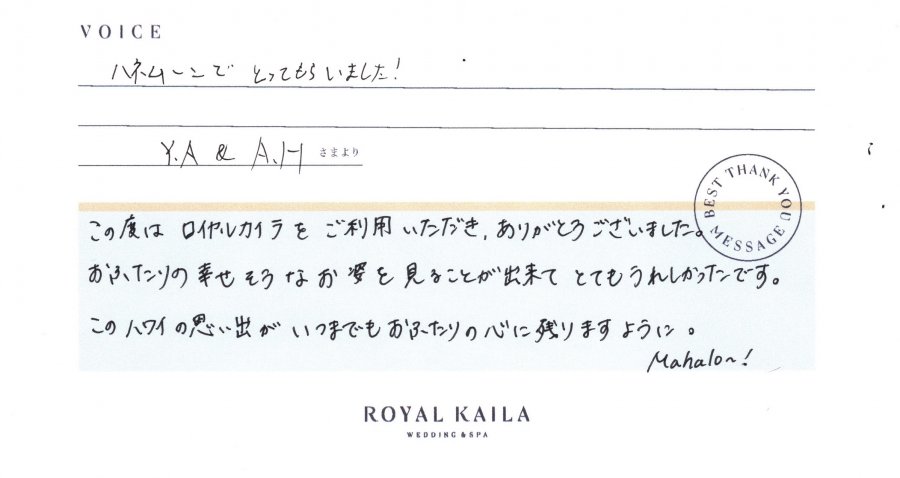 VOICE
ハネムーンで とってもらいました!
Y.A & A.H さまより
BEST THANK YOU MESSAGE
この度は ロイヤルカイラを ご利用 いただき、ありがとうございました。
おふたりの 幸せそうなお姿を見ることが出来て とてもうれしかったです。
このハワイの思い出が いつまでもおふたりの心に残りますように。
Mahalo~!
ROYAL KAILA
WEDDING & SPA